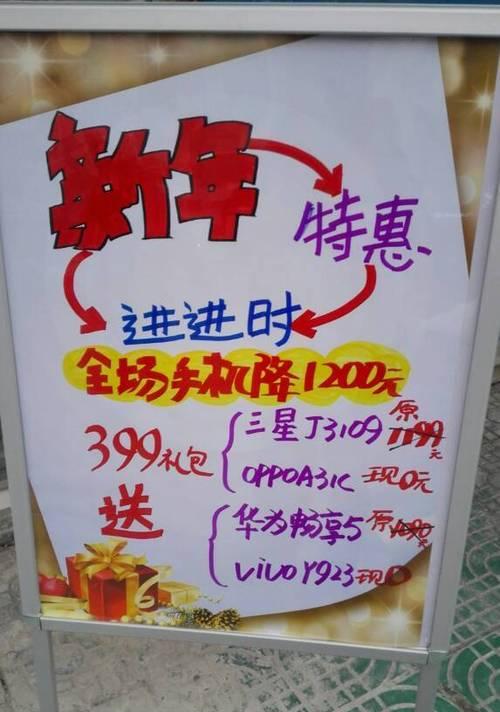 新年
特惠
进进时
全场手机降1200元
399礼包
送
三星J3109 原1199元
OPPOA31C 现0元
华为畅享5 原
vivoY923现0